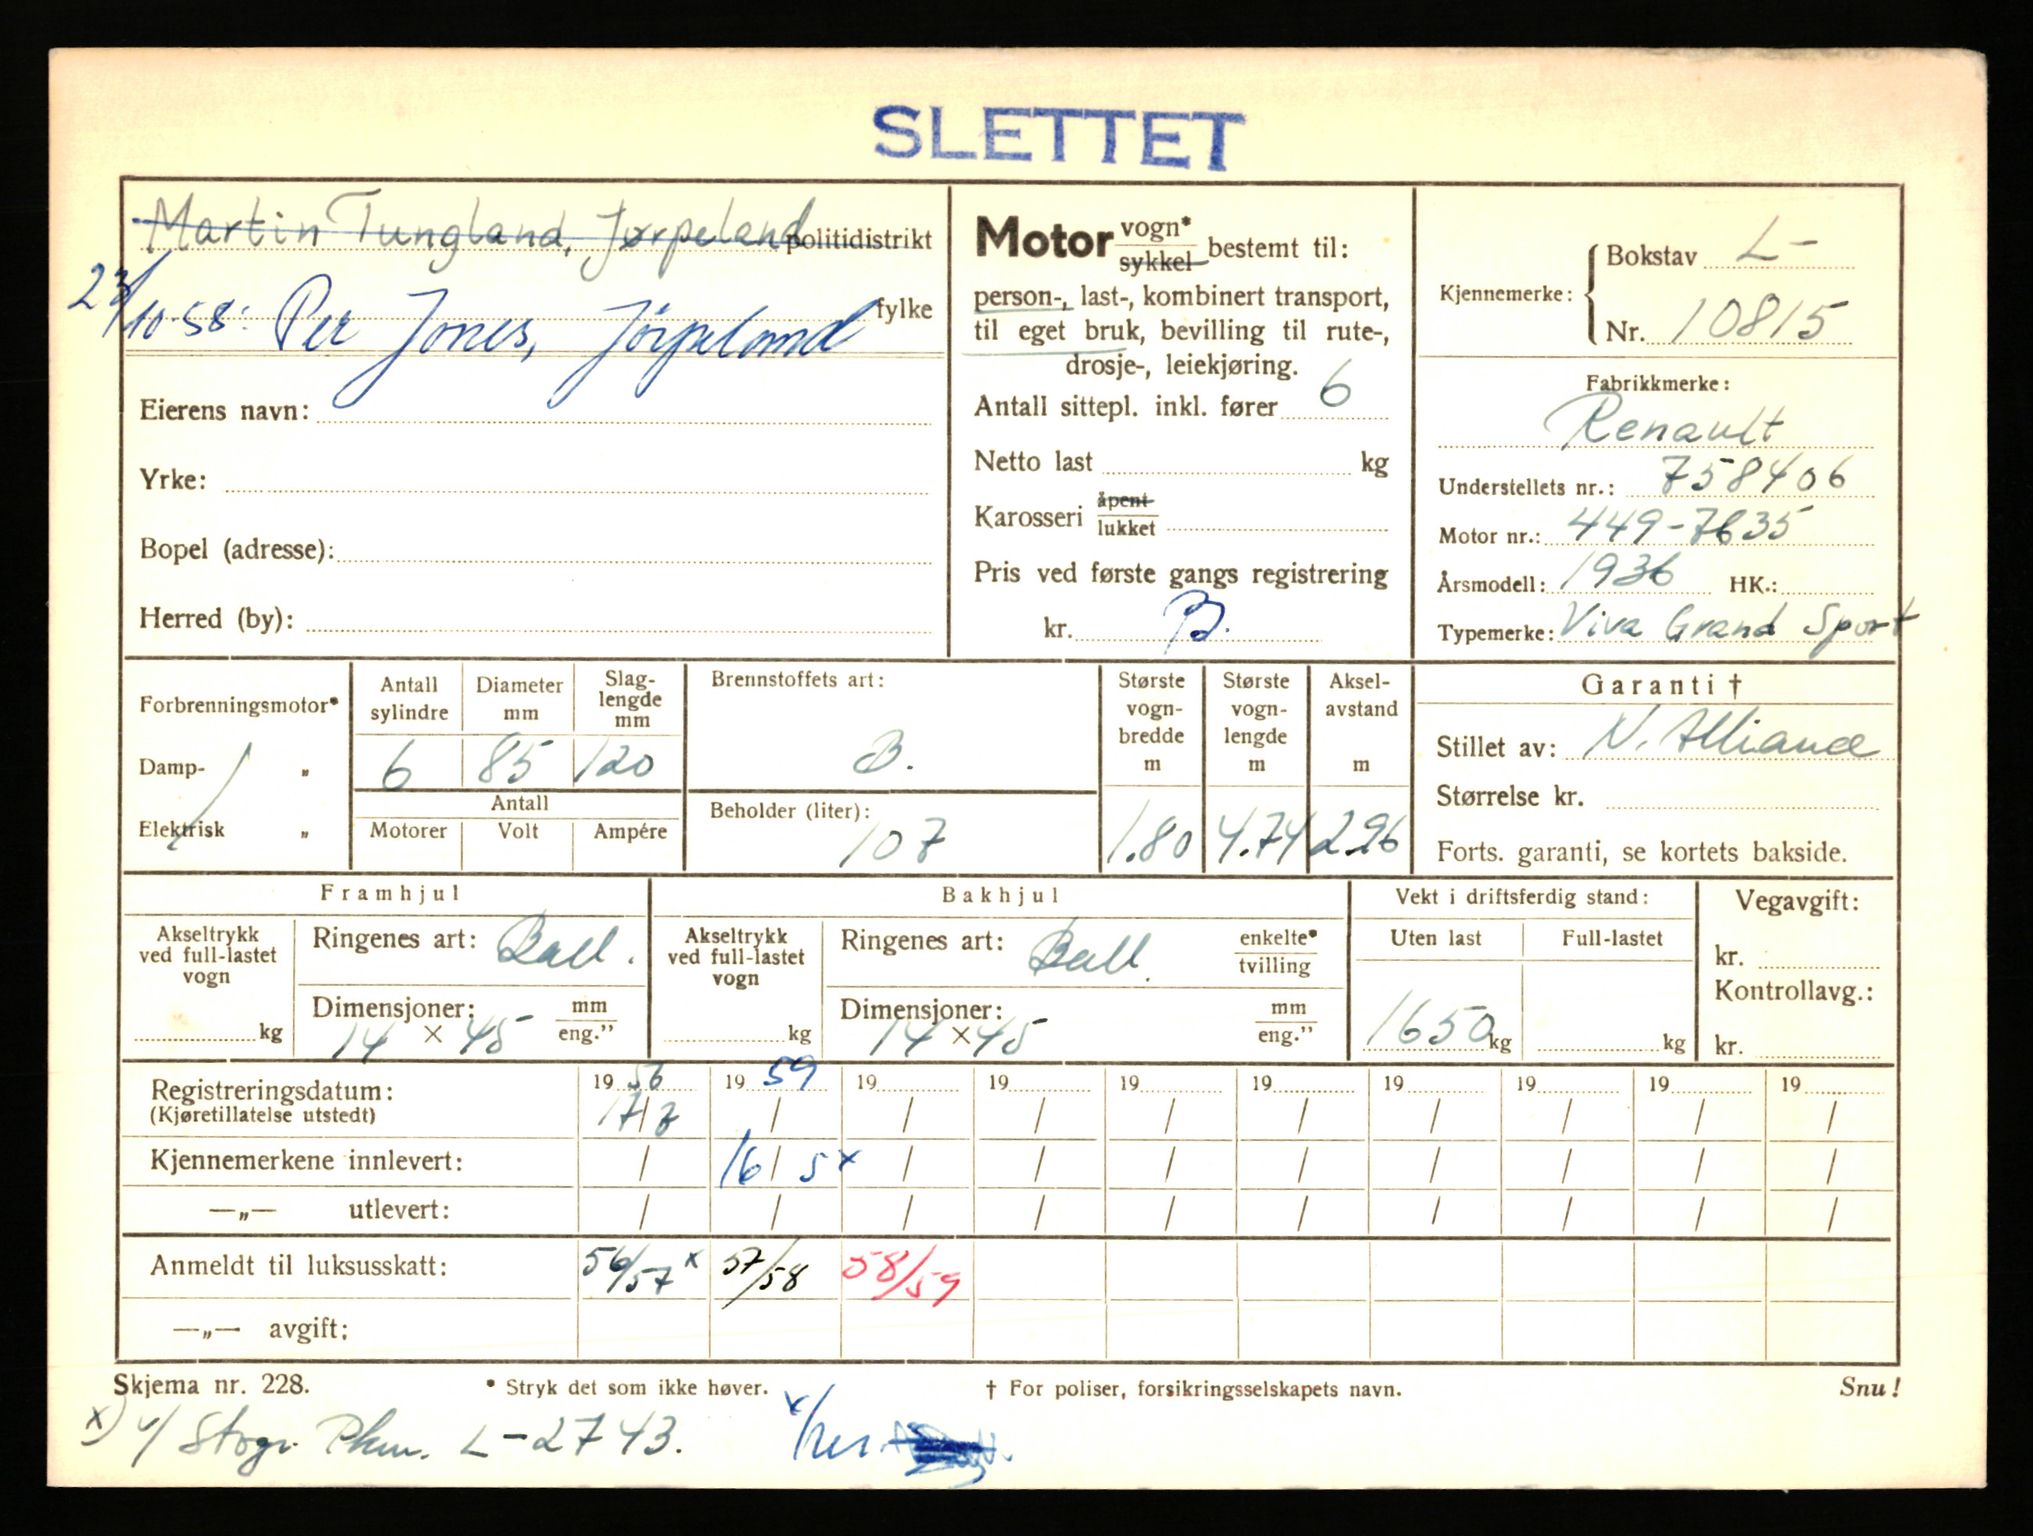 SLETTET
Martin Tungland, Jørpeland politidistrikt
23/10-58: Per Jones, Jørpeland fylke
Eierens navn:
Yrke:
Bopel (adresse):
Herred (by):
Motor vogn* sykkel bestemt til:
person-, last-, kombinert transport,
til eget bruk, bevilling til rute-,
drosje-, leiekjøring.
Antall sittepl. inkl. fører 6
Netto last kg
Karosseri åpent lukket
Pris ved første gangs registrering
kr. B.
Kjennemerke: Bokstav L-
Nr. 10815
Fabrikkmerke:
Renault
Understellets nr.: 758406
Motor nr.: 449-7635
Årsmodell: 1936 HK.:
Typemerke: Viva Grand Sport
Forbrenningsmotor*
Damp- „
Elektrisk „
Antall sylindre Diameter mm Slag-lengde mm
6 85 120
Antall
Motorer Volt Ampére
Brennstoffets art:
B.
Beholder (liter):
107
Største vogn-bredde m
1.80
Største vogn-lengde m
4.74
Aksel-avstand m
2.96
Garanti †
Stillet av: N. Alliance
Størrelse kr.
Forts. garanti, se kortets bakside.
Framhjul
Akseltrykk ved full-lastet vogn
kg
Ringenes art: Ball.
Dimensjoner: mm eng.”
14 × 45
Bakhjul
Akseltrykk ved full-lastet vogn
kg
Ringenes art: Ball. enkelte* tvilling
Dimensjoner: mm eng.”
14 × 45
Vekt i driftsferdig stand:
Uten last Full-lastet
1650 kg kg
Vegavgift:
kr.
Kontrollavg.:
kr.
Registreringsdatum: 19 56 19 59 19 19 19 19 19 19 19 19
(Kjøretillatelse utstedt) 17/7 / / / / / / / / /
Kjennemerkene innlevert: / 16/5 x / / / / / / / /
—„— utlevert: / / / / / / / / / /
Anmeldt til luksusskatt: 56/57 x 57/58 58/59
—„— avgift:
Skjema nr. 228. * Stryk det som ikke høver. † For poliser, forsikringsselskapets navn. Snu!
x) v/ L-2743.